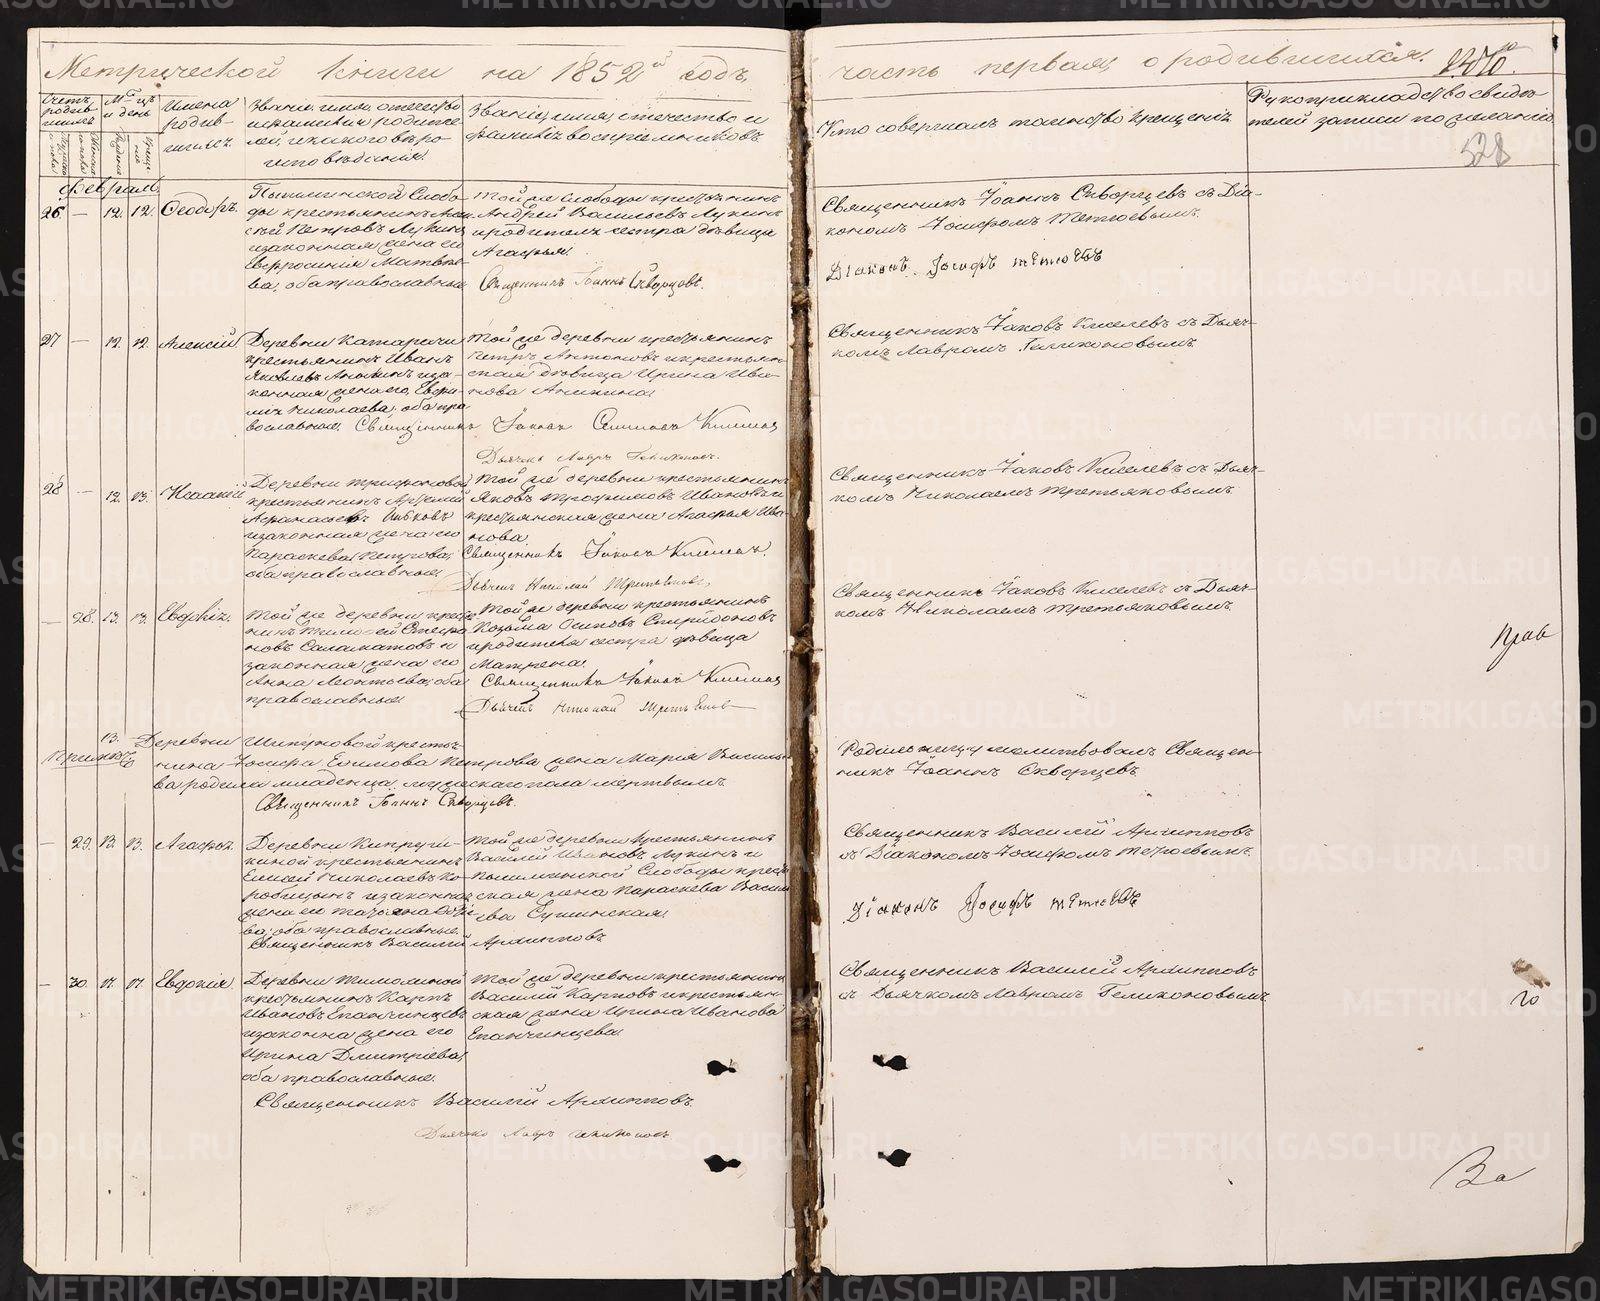 Метрической книги на 1852й годъ
часть первая, о родившихся.
528
Счетъ родив-
шихся
М-цъ
и день
Имена
родив-
шихся.
Званiе, имя, отечество
и фамилия родите-
лей, и какого веро-
исповѣданiя.
Званiе, имя, отечество и
фамилiя воспрiемниковъ
Кто совершалъ таинство крещенiя
Рукоприкладство свидѣ-
телей записи по желанiю
Февраль
26. — 12. 12. Ѳеодоръ.
Пышминской Слобо-
ды крестьянинъ
Петровъ Лукинъ
и законная жена его
Евфросинiя Матвѣе-
ва, оба православные
Той же Слободы крестьянинъ
Андрей Васильевъ Лукинъ
и родителя сестра дѣвица
Агафья.
Священникъ Iоаннъ Скворцовъ.
Священникъ Iоаннъ Скворцевъ съ Дiа-
кономъ Iосифомъ Тетюевымъ.
Дiаконъ Iосифъ Тетюевъ
27 — 12. 12. Алексiй
Деревни Катарачи
крестьянинъ Иванъ
Яковлевъ Аникинъ и за-
конная жена его
Николаева, оба пра-
вославные. Священникъ Iаковъ Киселевъ
Той же деревни крестьянинъ
Петръ Антоновъ и крестьян-
ская дѣвица Ирина Ива-
нова Аникина
Дьячекъ Лавръ Геликоновъ.
Священникъ Iаковъ Киселевъ съ Дьяч-
комъ Лавромъ Геликоновымъ.
28 — 12. 13. Исаакiй
Деревни Трифоновой
крестьянинъ Артемiй
Афанасьевъ
и законная жена его
Параскева Петрова,
оба православные
Той же деревни крестьянинъ
Яковъ Трофимовъ Ивановъ и
крестьянская жена Агафья Ива-
нова
Священникъ Iаковъ Киселевъ.
Дьячекъ Николай Третьяковъ.
Священникъ Iаковъ Киселевъ съ Дьяч-
комъ Николаемъ Третьяковымъ
— 28. 13. 13. Евдокiя.
Той же деревни кресть-
нинъ Тимоѳей Стефа-
новъ Саламатовъ и
законная жена его
Анна Леонтьева, оба
православные
Той же деревни крестьянинъ
Козьма Осиповъ Спиридоновъ
и родителя сестра дѣвица
Матрена.
Священникъ Iаковъ Киселевъ
Дьячекъ Николай Третьяковъ
Священникъ Iаковъ Киселевъ съ Дьяч-
комъ Николаемъ Третьяковымъ.
13. Деревни Шипуновой кресть-
нина Iосифа Ефимова Петрова жена Марiя Василье-
ва родила младенца мужескаго пола мертвымъ.
Священникъ Iоаннъ Скворцовъ.
Родильницу молитвовалъ Священ-
никъ Iоаннъ Скворцевъ
— 29. 13. 13. Агафья.
Деревни
крестьянинъ
Елисей Николаевъ Ко-
робицынъ и законная
жена его Татьяна
ва, оба православные.
Священникъ Василiй Архипповъ
Той же деревни крестьянинъ
Василiй Ивановъ Лукинъ и
Пышминской Слободы кресть-
ская жена Параскева Василье-
ва Сушинская.
Священникъ Василiй Архипповъ
съ Дiакономъ Iосифомъ Тетюевымъ.
Дiаконъ Iосифъ Тетюевъ
— 30. 17. 17. Евдокiя.
Деревни Тимохиной
крестьянинъ Карпъ
Ивановъ Епанчинцевъ
и законна жена его
Ирина Дмитрiева,
оба православные.
Священникъ Василiй Архипповъ.
Той же деревни крестьянинъ
Василiй Карповъ и крестьян-
ская жена Ирина Иванова
Епанчинцева.
Дьячекъ Лавръ Геликоновъ
Священникъ Василiй Архипповъ
съ Дьячкомъ Лавромъ Геликоновымъ
го
За
METRIKI.GASO-URAL.RU